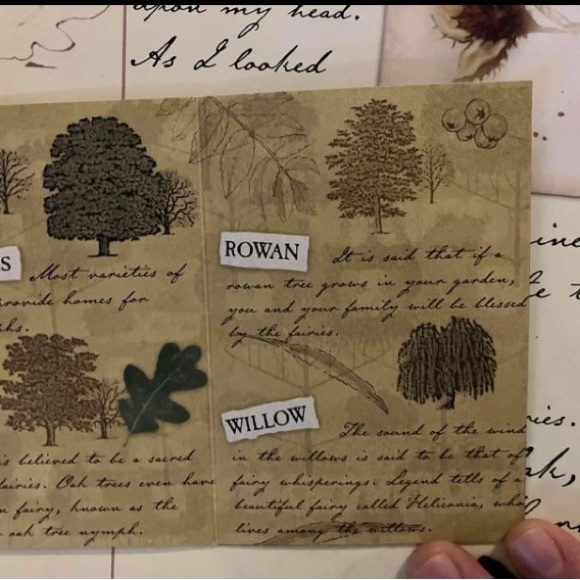 upon my head.
As I looked
S Most varieties of
provide homes for
ROWAN It is said that if a
rowan tree grows in your garden,
you and your family will be blessed
by the fairies.
is believed to be a sacred
fairies. Oak trees even have
fairy, known as the
oak tree nymph.
WILLOW The sound of the wind
in the willows is said to be that of
fairy whisperings. Legend tells of a
beautiful fairy called Heliconia, who
lives among the willows.